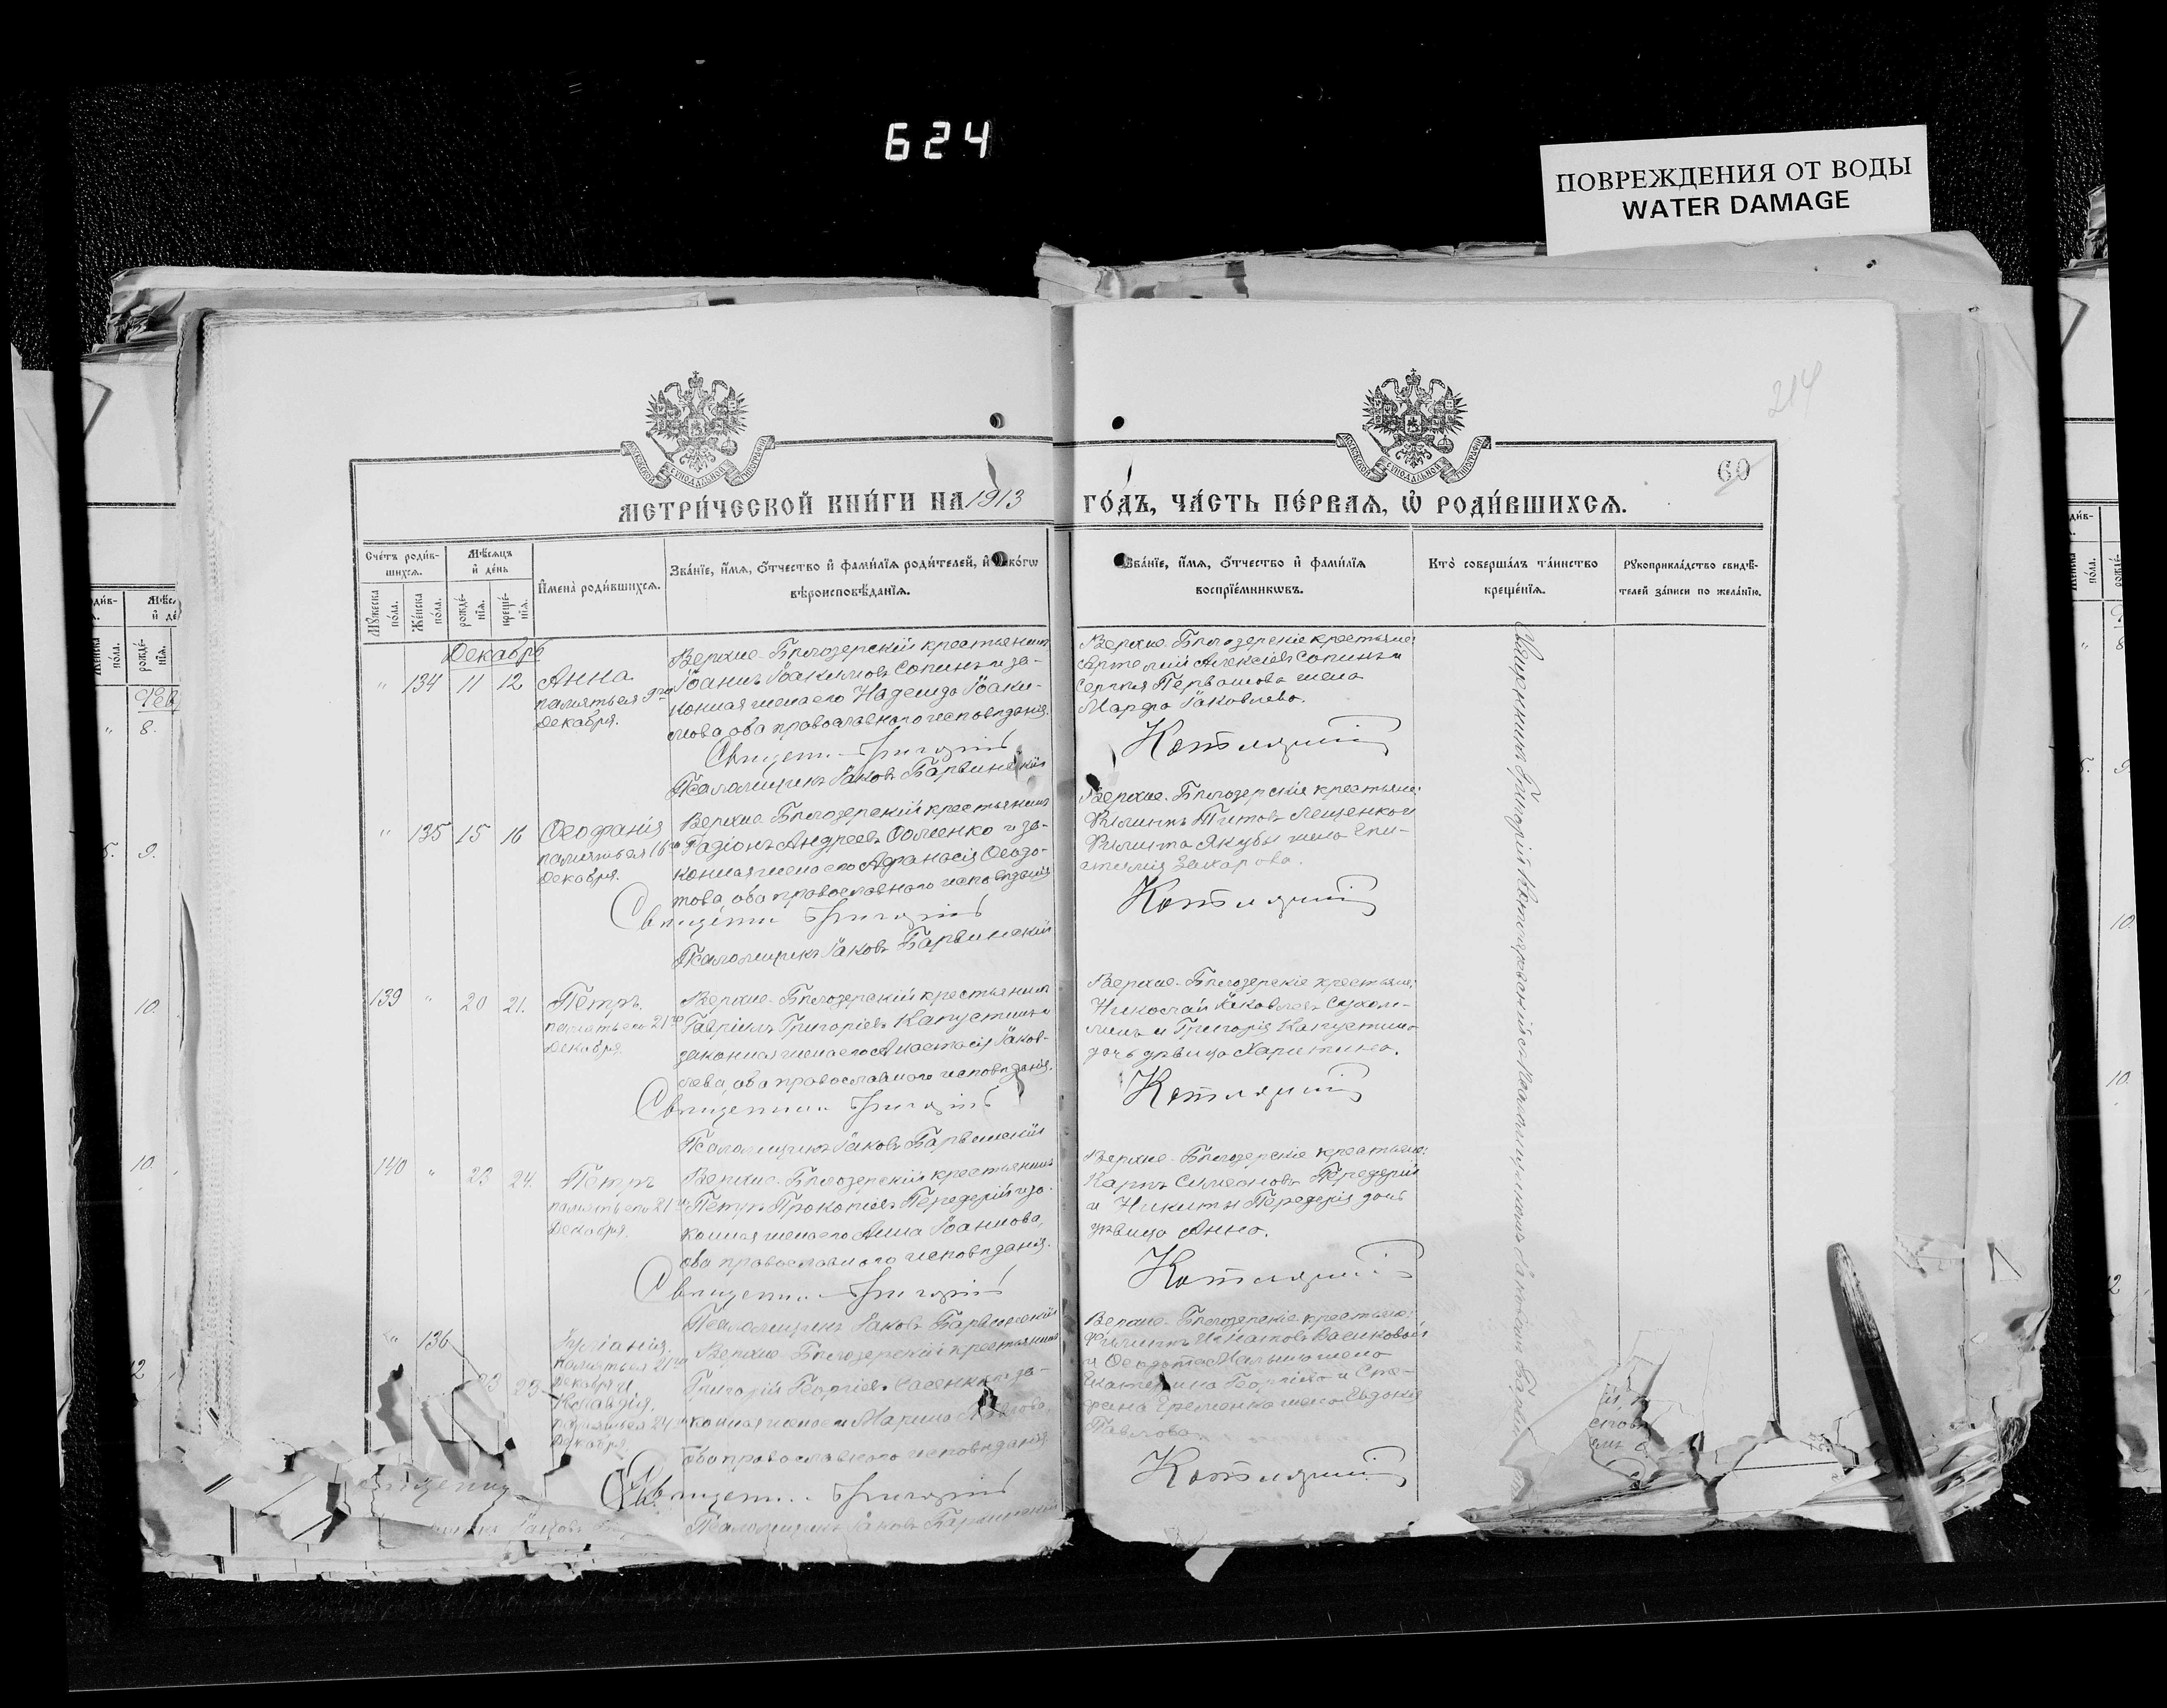 624
ПОВРЕЖДЕНИЯ ОТ ВОДЫ
WATER DAMAGE
214
60
МЕТРИ́ЧЕСКОЙ КНИ́ГИ НА 1913 ГО́ДЪ, ЧА́СТЬ ПЕ́РВАЯ, Ѡ҆ РОДИ́ВШИХСЯ.
Сче́тъ роди́в-
шихся.
Мѣ́сяцъ
и҆ де́нь
Мꙋ́жеска
по́ла.
Же́нска
по́ла.
рожде́-
нїѧ.
креще́-
нїѧ.
И҆мена̀ роди́вшихсѧ.
Зва́нїе, и҆́мѧ, ѻ҆́тчество и҆ фами́лїѧ роди́телей, и҆ како́гѡ
вѣроисповѣ́данїѧ.
Зва́нїе, и҆́мѧ, ѻ҆́тчество и҆ фами́лїѧ
воспрїе́мникѡвъ.
Кто̀ соверша́лъ та́инство
креще́нїѧ.
Рꙋкоприкла́дство свидѣ́-
телей за́писи по жела́нїю.
Декабрь
" 134 11 12 Анна
память ея 9го
декабря.
Верхне-Бѣлозерскій крестьянинъ
Іоаннъ Іоакимовъ Сопинъ и за-
конная жена его Надежда Іоаки-
мова, оба православнаго исповѣданія.
Священн. Григорій
Псаломщикъ Іаковъ Барвинскій
Верхне-Бѣлозерскіе крестьяне:
Артемій Алексіевъ Сопинъ и
Сергѣя Первашова жена
Марфа Іаковлева.
Котляревскій
" 135 15 16 Ѳеофанія
память ея 16го
декабря.
Верхне-Бѣлозерскій крестьянинъ
Радіонъ Андреевъ и за-
конная жена его Афанасія Ѳеодо-
това, оба православнаго исповѣданія
Священн. Григорій
Псаломщикъ Іаковъ Барвинскій
Верхне-Бѣлозерскіе крестьяне:
Филиппъ Титовъ Лещенко и
Филиппа Якубы жена Епи-
стимія Захарова.
Котляревскій
139 " 20 21. Петръ.
память его 21го
декабря.
Верхне-Бѣлозерскій крестьянинъ
Гавріилъ Григоріевъ Капустинъ и
законная жена его Анастасія Іаков-
лева, оба православнаго исповѣданія.
Священникъ Григорій
Псаломщикъ Іаковъ Барвинскій
Верхне-Бѣлозерскіе крестьяне:
Николай Іаковлевъ Сухом-
линъ и Григорія Капустина
дочь дѣвица Харитина.
Котляревскій
140 " 23 24. Петръ
память его 21го
декабря.
Верхне-Бѣлозерскій крестьянинъ
Петръ Прокопіевъ Передерій и за-
конная жена его Анна Іоаннова,
оба православнаго исповѣданія.
Священн. Григорій
Псаломщикъ Іаковъ Барвинскій
Верхне-Бѣлозерскіе крестьяне:
Карпъ Симеоновъ Передерій
и Никиты Передерія дочь
дѣвица Анна.
Котляревскій
" 136 23 25 Іуліанія,
память ея 21го
декабря и
Клавдія,
память ея 24го
декабря.
Верхне-Бѣлозерскій крестьянинъ
Григорій Георгіевъ и за-
конная жена его Марина Павлова,
оба православнаго исповѣданія.
Священн. Григорій
Псаломщикъ Іаковъ Барвинскій
Верхне-Бѣлозерскіе крестьяне:
Филиппъ Игнатовъ
и Ѳеодота жена
Екатерина Георгіева и Сте-
фана Еременка жена Евдокія
Павлова
Котляревскій
Священникъ Григорій Котляревскій съ Псаломщикомъ Іаковомъ